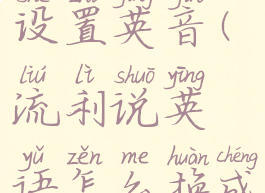 设置英音(
liú lì shuō yīng
流利说英
yǔ zěn me huàn chéng
语怎么换成